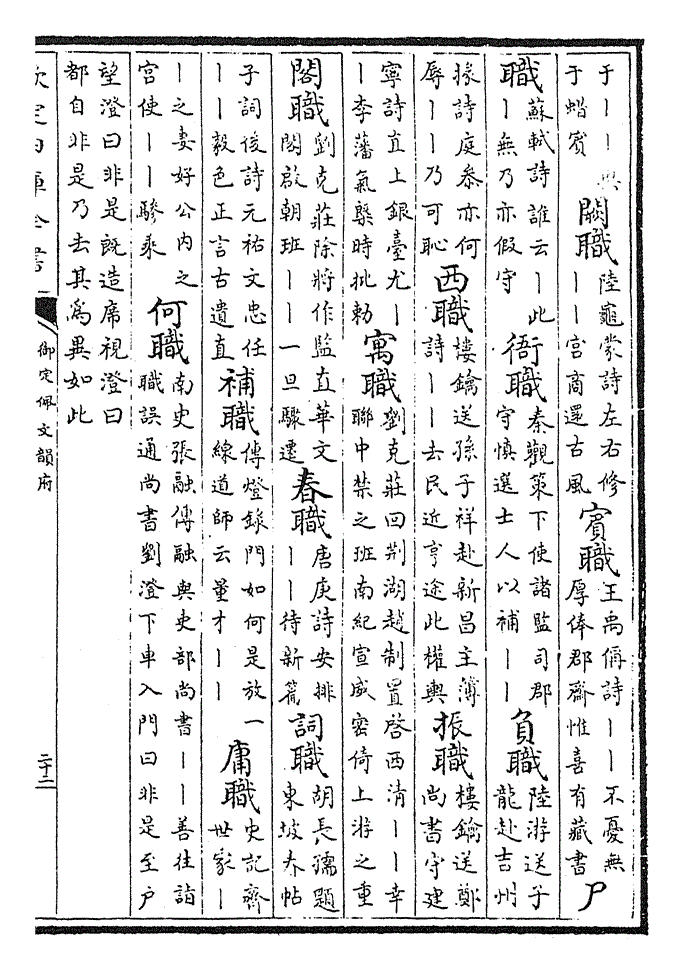 于丨丨與于蜡賓 闕職 陸龜蒙詩左右修丨丨宮商還古風 賓職 王禹偁詩丨丨不憂無厚俸郡齋惟喜有藏書 尸
職 蘇軾詩誰云丨此丨無乃亦假守 衙職 秦觀策下使諸監司郡守慎選士人以補丨丨 負職 陸游送子龍赴吉州
掾詩庭叅亦何辱丨丨乃可恥 西職 樓鑰送孫子祥赴新昌主簿詩丨丨去民近亨途此權輿 振職 樓鑰送鄭尚書守建
寧詩直上銀臺尤丨丨李藩氣槩時批勅 寓職 劉克莊回荆湖趙制置啓西清丨丨幸聯中禁之班南紀宣威密倚上游之重
閣職 劉克莊除將作監直華文閣啟朝班丨丨一旦驟遷 春職 唐庚詩安排丨丨待新篇 詞職 胡長孺題東坡春帖
子詞後詩元祐文忠任丨丨毅色正言古遺直 補職 傳燈錄門如何是放一線道師云量才丨丨 庸職 史記齊世家丨
丨之妻好公內之宮使丨丨驂乘 何職 南史張融傳融與吏部尚書丨丨善往詣職誤通尚書劉澄下車入門曰非是至户
望澄曰非是既造席視澄曰都自非是乃去其爲異如此
欽定四庫全書 御定佩文韻府 二十二